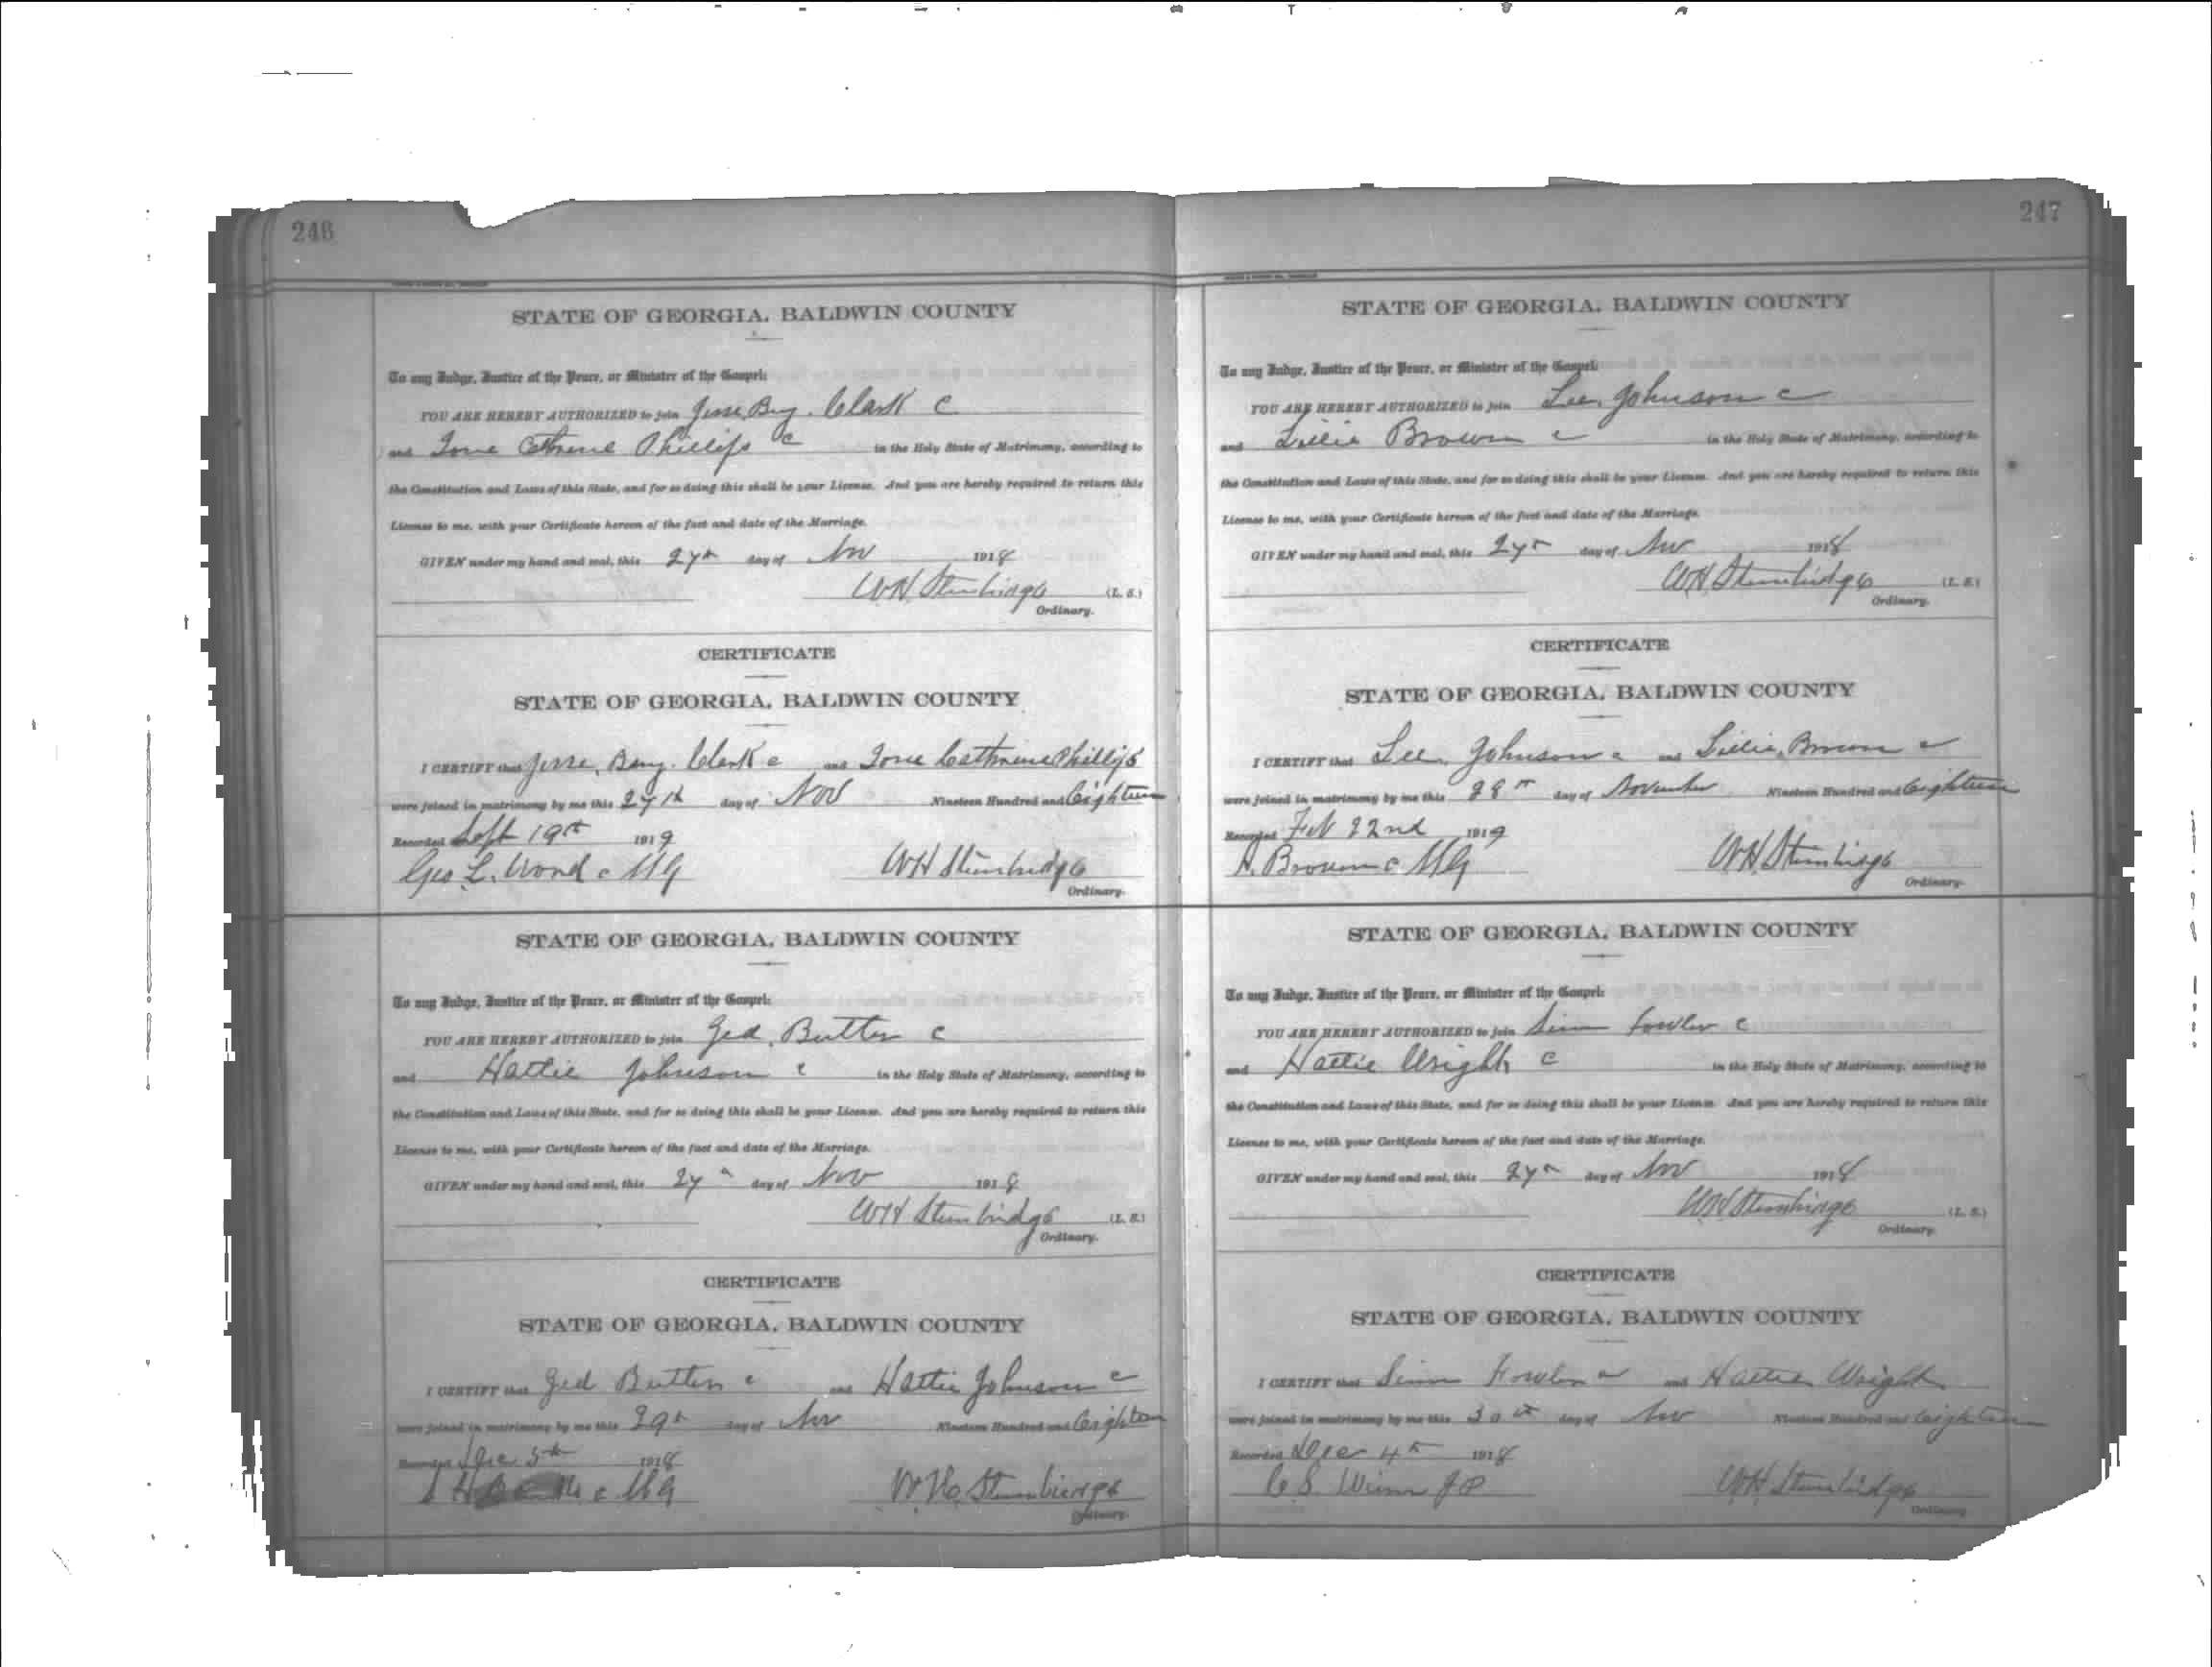 246
STATE OF GEORGIA, BALDWIN COUNTY
To any Judge, Justice of the Peace, or Minister of the Gospel:
YOU ARE HEREBY AUTHORIZED to join Jesse Benj. Clark C
and Phillips C in the Holy State of Matrimony, according to
the Constitution and Laws of this State, and for so doing this shall be your License. And you are hereby required to return this
License to me, with your Certificate hereon of the fact and date of the Marriage.
GIVEN under my hand and seal, this 27th day of Nov 1918
WH Stembridge (L. S.)
Ordinary.
CERTIFICATE
STATE OF GEORGIA, BALDWIN COUNTY
I CERTIFY that Jesse Benj. Clark c and Cathrine Phillips
were joined in matrimony by me this 27th day of Nov Nineteen Hundred and Eighteen
Recorded Sept 19th 1919
Geo. L. Wond c MG WH Stembridge
Ordinary.
STATE OF GEORGIA, BALDWIN COUNTY
To any Judge, Justice of the Peace, or Minister of the Gospel:
YOU ARE HEREBY AUTHORIZED to join Ged Butler C
and Hattie Johnson c in the Holy State of Matrimony, according to
the Constitution and Laws of this State, and for so doing this shall be your License. And you are hereby required to return this
License to me, with your Certificate hereon of the fact and date of the Marriage.
GIVEN under my hand and seal, this 27th day of Nov 1918
WH Stembridge (L. S.)
Ordinary.
CERTIFICATE
STATE OF GEORGIA, BALDWIN COUNTY
I CERTIFY that Ged Butler c and Hattie Johnson c
were joined in matrimony by me this 29th day of Nov Nineteen Hundred and Eighteen
Recorded Dec 5th 1918
c MG W.H. Stembridge
Ordinary.
247
STATE OF GEORGIA, BALDWIN COUNTY
To any Judge, Justice of the Peace, or Minister of the Gospel:
YOU ARE HEREBY AUTHORIZED to join Lee Johnson c
and Lillie Brown c in the Holy State of Matrimony, according to
the Constitution and Laws of this State, and for so doing this shall be your License. And you are hereby required to return this
License to me, with your Certificate hereon of the fact and date of the Marriage.
GIVEN under my hand and seal, this 27th day of Nov 1918
WH Stembridge (L. S.)
Ordinary.
CERTIFICATE
STATE OF GEORGIA, BALDWIN COUNTY
I CERTIFY that Lee Johnson c and Lillie Brown c
were joined in matrimony by me this 28th day of November Nineteen Hundred and Eighteen
Recorded Feb 22nd 1919
Brown c MG WH Stembridge
Ordinary.
STATE OF GEORGIA, BALDWIN COUNTY
To any Judge, Justice of the Peace, or Minister of the Gospel:
YOU ARE HEREBY AUTHORIZED to join Sim Fowler c
and Hattie Wright c in the Holy State of Matrimony, according to
the Constitution and Laws of this State, and for so doing this shall be your License. And you are hereby required to return this
License to me, with your Certificate hereon of the fact and date of the Marriage.
GIVEN under my hand and seal, this 27th day of Nov 1918
WH Stembridge (L. S.)
Ordinary.
CERTIFICATE
STATE OF GEORGIA, BALDWIN COUNTY
I CERTIFY that Sim Fowler c and Hattie Wright
were joined in matrimony by me this 30th day of Nov Nineteen Hundred and Eighteen
Recorded Dec 4th 1918
C S. Winn JP WH Stembridge
Ordinary